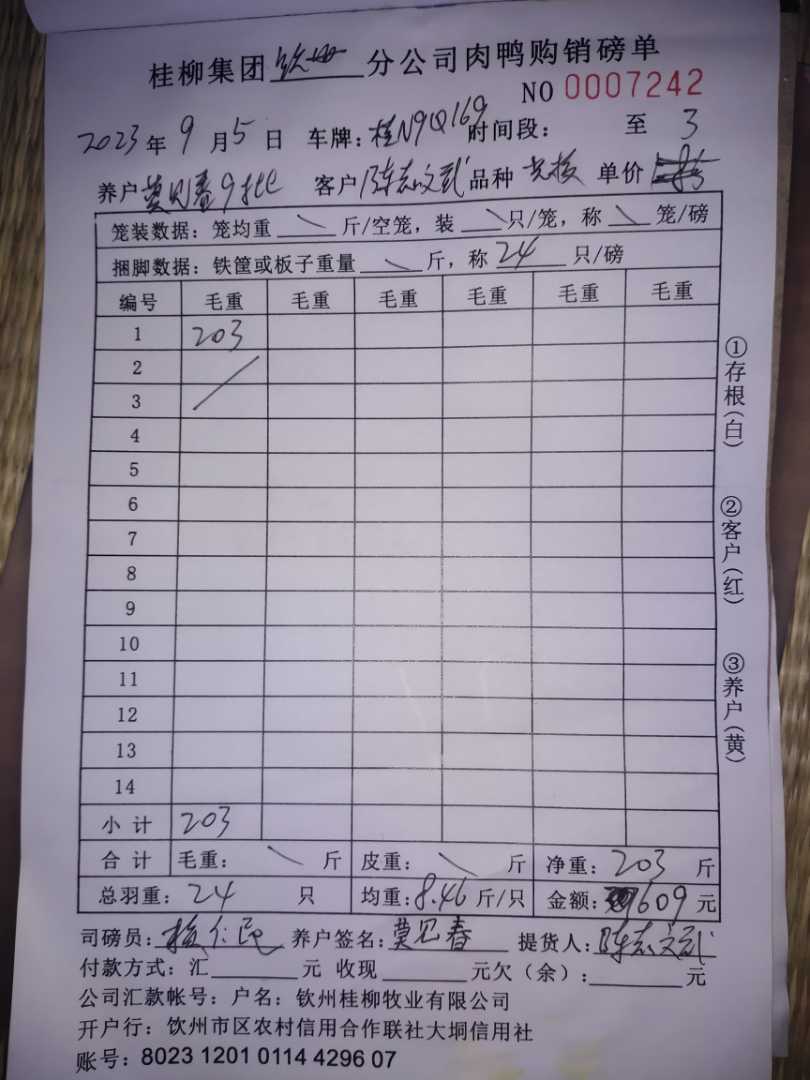 桂柳集团钦州分公司肉鸭购销磅单
NO 0007242
2023年9月5日 车牌：桂N9Q169 时间段： 至 3
养户 莫见春9批 客户 陈志文武 品种 单价
笼装数据：笼均重 \ 斤/空笼，装 \ 只/笼，称 \ 笼/磅
捆脚数据：铁筐或板子重量 \ 斤，称 24 只/磅
编号 毛重 毛重 毛重 毛重 毛重 毛重
1 203
2
3
4
5
6
7
8
9
10
11
12
13
14
小计 203
合计 毛重： \ 斤 皮重： \ 斤 净重：203 斤
总羽重：24 只 均重：8.46 斤/只 金额：1609 元
司磅员： 养户签名：莫见春 提货人：陈志文武
付款方式：汇 元 收现 元欠（余）： 元
公司汇款帐号：户名：钦州桂柳牧业有限公司
开户行：饮州市区农村信用合作联社大垌信用社
账号：8023 1201 0114 4296 07
①存根（白）
②客户（红）
③养户（黄）